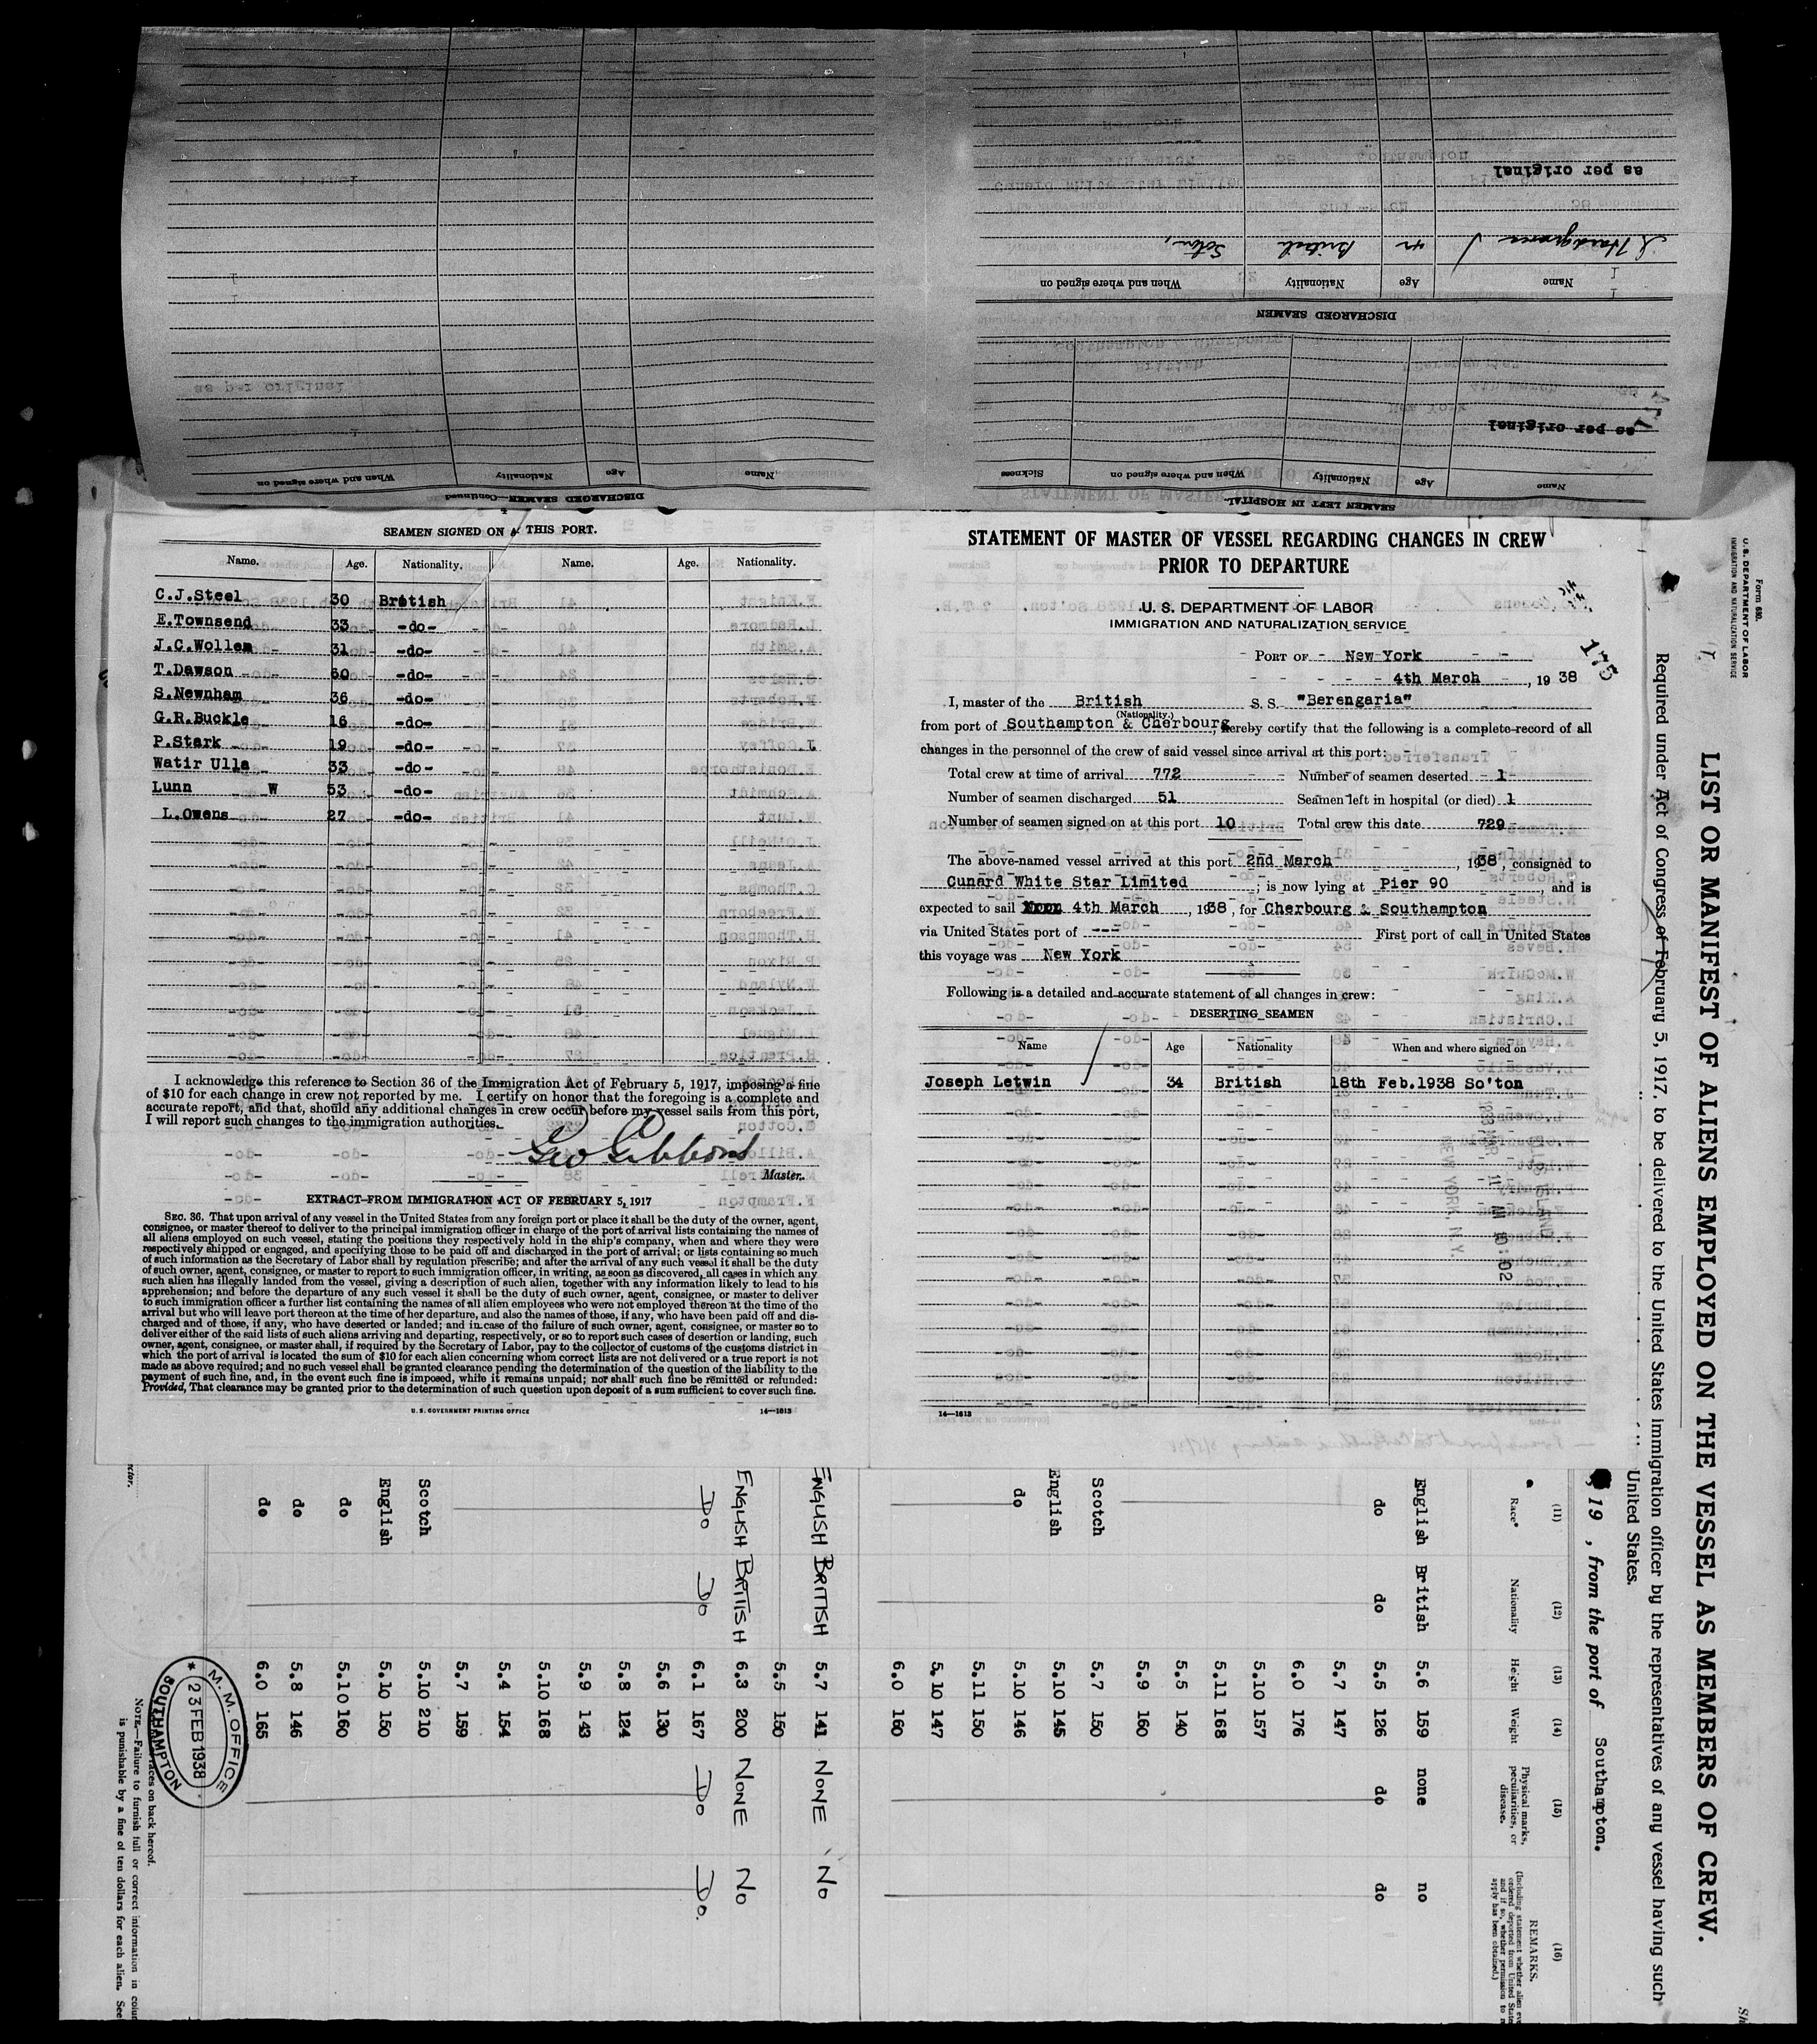 SEAMEN SIGNED ON A THIS PORT.
Name. Age. Nationality. Name. Age. Nationality.
C.J.Steel 30 British
E.Townsend 33 -do-
J.C.Wollem 31 -do-
T.Dawson 60 -do-
S.Newnham 36 -do-
G.R.Buckle 16 -do-
P.Stark 19 -do-
Watir Ulla 33 -do-
Lunn W 53 -do-
L.Owens 27 -do-
I acknowledge this reference to Section 36 of the Immigration Act of February 5, 1917, imposing a fine
of $10 for each change in crew not reported by me. I certify on honor that the foregoing is a complete and
accurate report, and that, should any additional changes in crew occur before my vessel sails from this port,
I will report such changes to the immigration authorities.
Geo Gibbons
Master.
EXTRACT FROM IMMIGRATION ACT OF FEBRUARY 5, 1917
SEC. 36. That upon arrival of any vessel in the United States from any foreign port or place it shall be the duty of the owner, agent,
consignee, or master thereof to deliver to the principal immigration officer in charge of the port of arrival lists containing the names of
all aliens employed on such vessel, stating the positions they respectively hold in the ship's company, when and where they were
respectively shipped or engaged, and specifying those to be paid off and discharged in the port of arrival; or lists containing so much
of such information as the Secretary of Labor shall by regulation prescribe; and after the arrival of any such vessel it shall be the duty
of such owner, agent, consignee, or master to report to such immigration officer, in writing, as soon as discovered, all cases in which any
such alien has illegally landed from the vessel, giving a description of such alien, together with any information likely to lead to his
apprehension; and before the departure of any such vessel it shall be the duty of such owner, agent, consignee, or master to deliver
to such immigration officer a further list containing the names of all alien employees who were not employed thereon at the time of the
arrival but who will leave port thereon at the time of her departure, and also the names of those, if any, who have been paid off and dis-
charged and of those, if any, who have deserted or landed; and in case of the failure of such owner, agent, consignee, or master so to
deliver either of the said lists of such aliens arriving and departing, respectively, or so to report such cases of desertion or landing, such
owner, agent, consignee, or master shall, if required by the Secretary of Labor, pay to the collector of customs of the customs district in
which the port of arrival is located the sum of $10 for each alien concerning whom correct lists are not delivered or a true report is not
made as above required; and no such vessel shall be granted clearance pending the determination of the question of the liability to the
payment of such fine, and, in the event such fine is imposed, while it remains unpaid; nor shall such fine be remitted or refunded:
Provided, That clearance may be granted prior to the determination of such question upon deposit of a sum sufficient to cover such fine.
U. S. GOVERNMENT PRINTING OFFICE 14—1613
STATEMENT OF MASTER OF VESSEL REGARDING CHANGES IN CREW
PRIOR TO DEPARTURE
U. S. DEPARTMENT OF LABOR
IMMIGRATION AND NATURALIZATION SERVICE
175
PORT OF New York
4th March, 1938
I, master of the British S. S. "Berengaria"
(Nationality.)
from port of Southampton & Cherbourg, hereby certify that the following is a complete record of all
changes in the personnel of the crew of said vessel since arrival at this port:
Total crew at time of arrival 772 Number of seamen deserted 1
Number of seamen discharged 51 Seamen left in hospital (or died) 1
Number of seamen signed on at this port 10 Total crew this date 729
The above-named vessel arrived at this port 2nd March, 1938, consigned to
Cunard White Star Limited; is now lying at Pier 90, and is
expected to sail 4th March, 1938, for Cherbourg & Southampton
via United States port of --- First port of call in United States
this voyage was New York
Following is a detailed and accurate statement of all changes in crew:
DESERTING SEAMEN
Name Age Nationality When and where signed on
Joseph Letwin 34 British 18th Feb.1938 So'ton
14—1613
SEAMEN LEFT IN HOSPITAL
Name Age Nationality When and where signed on Sickness
as per original
DISCHARGED SEAMEN
Name Age Nationality When and where signed on
British Soton,
as per original
DISCHARGED SEAMEN—Continued
Name Age Nationality When and where signed on
Form 680.
U. S. DEPARTMENT OF LABOR
IMMIGRATION AND NATURALIZATION SERVICE
LIST OR MANIFEST OF ALIENS EMPLOYED ON THE VESSEL AS MEMBERS OF CREW.
Required under Act of Congress of February 5, 1917, to be delivered to the United States immigration officer by the representatives of any vessel having such
United States.
, 19 , from the port of Southampton.
(11) (12) (13) (14) (15) (16)
Race* Nationality Height Weight Physical marks, peculiarities, or disease. REMARKS.
English British 5.6 159 none no
do do 5.5 126 do do
5.7 147
6.0 176
5.10 157
5.11 168
5.5 140
5.9 160
Scotch 5.7 150
English 5.10 145
do 5.10 146
5.11 150
5.10 147
6.0 160
ENGLISH BRITISH 5.7 141 NONE NO
5.5 150
ENGLISH BRITISH 6.3 200 NONE NO
Do Do 6.1 167 Do Do.
5.6 130
5.8 124
5.9 143
5.10 168
5.4 154
5.7 159
Scotch 5.10 210
English 5.10 150
do 5.10 160
do 5.8 146
do 6.0 165
M. M. OFFICE
23 FEB 1938
SOUTHAMPTON
races on back hereof.
NOTE.—Failure to furnish full or correct information in colum
is punishable by a fine of ten dollars for each alien. See